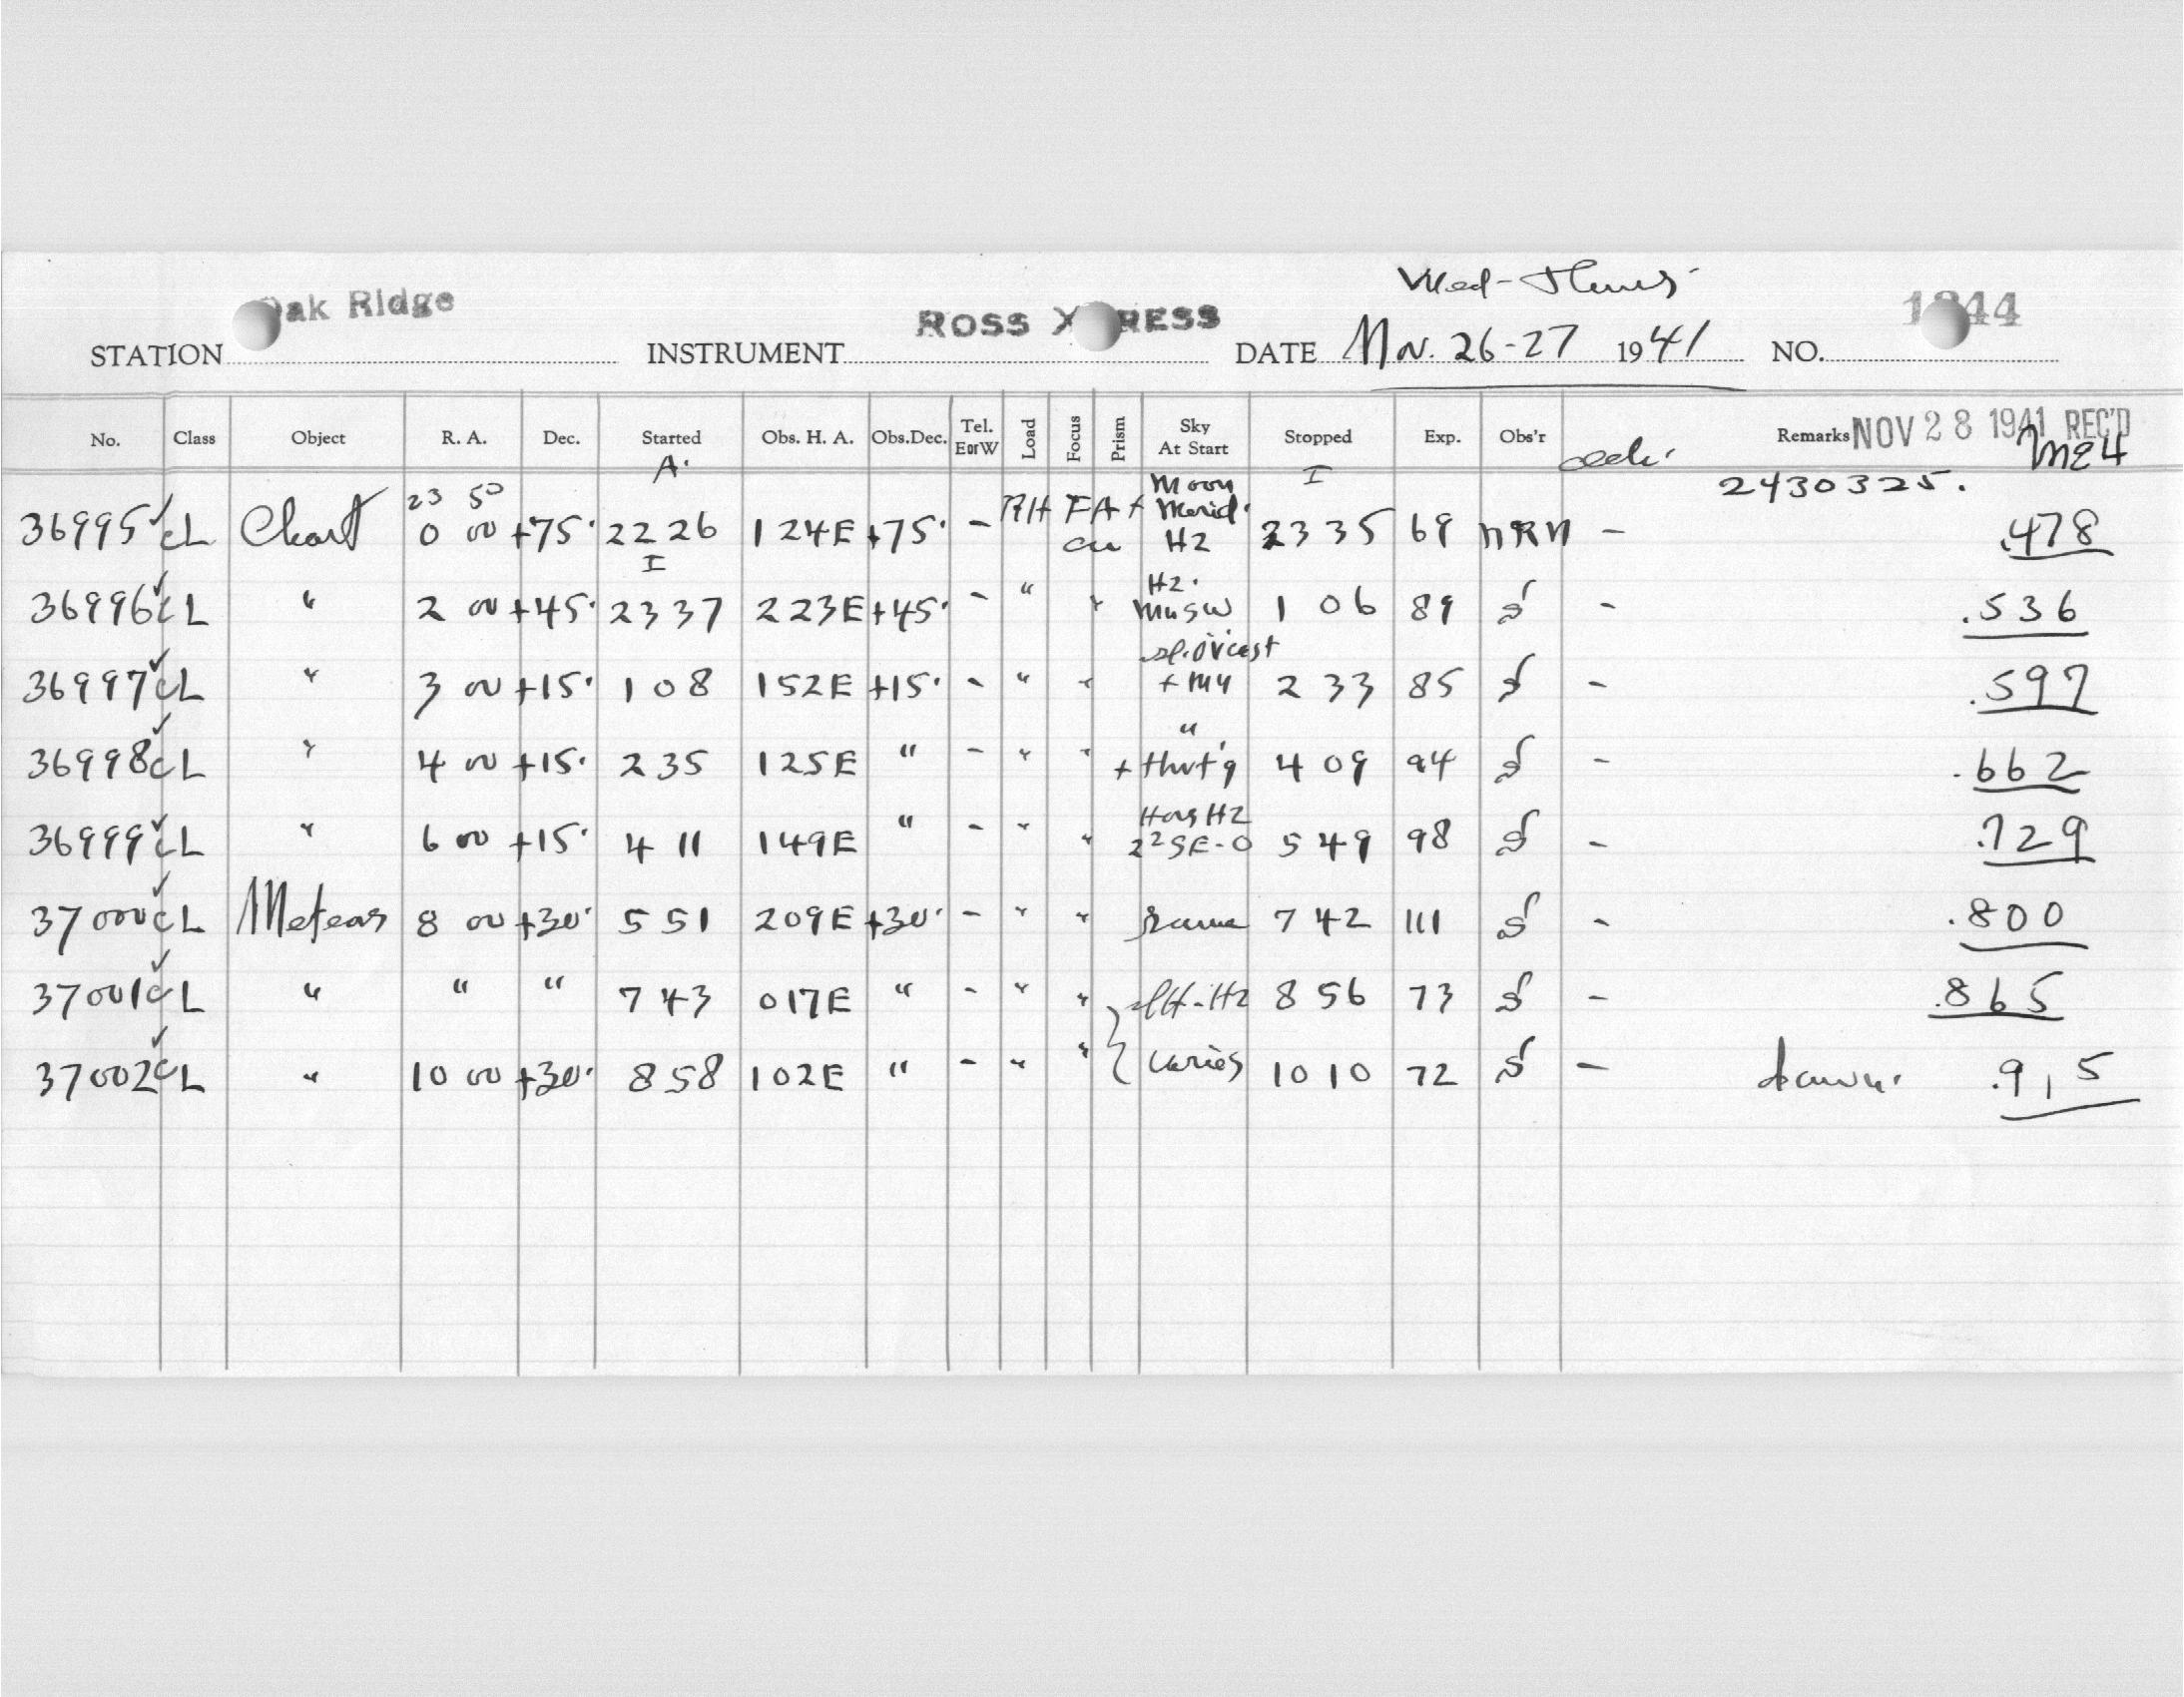 Wed-Thurs
STATION Oak Ridge INSTRUMENT ROSS XPRESS DATE Nov. 26-27 1941 NO. 1844
No. Class Object R. A. Dec. Started Obs. H. A. Obs.Dec. Tel. EorW Load Focus Prism Sky At Start Stopped Exp. Obs'r Remarks NOV 28 1941 REC'D
A. I
2430325.
23 50 Moon
36995 ✓ cL Chart 0 00 +75· 22 26 124E +75· - RH FA Merid. H2 23 35 69 HRN - .478
I
36996 ✓ cL " 2 00 +45· 23 37 223E +45· - " " H2. 1 06 89 - .536
36997 ✓ cL " 3 00 +15· 1 08 152E +15· - " " 2 33 85 - .597
36998 ✓ cL " 4 00 +15· 2 35 125E " - " " " 4 09 94 - .662
36999 ✓ cL " 6 00 +15· 4 11 149E " - " " H2 5 49 98 - .729
37000 ✓ cL Meteors 8 00 +30· 5 51 209E +30· - " " same 7 42 111 - .800
37001 ✓ cL " " " 7 43 017E " - " " 8 56 73 - .865
37002 ✓ cL " 10 00 +30· 8 58 102E " - " " varies 10 10 72 - dawn. .915